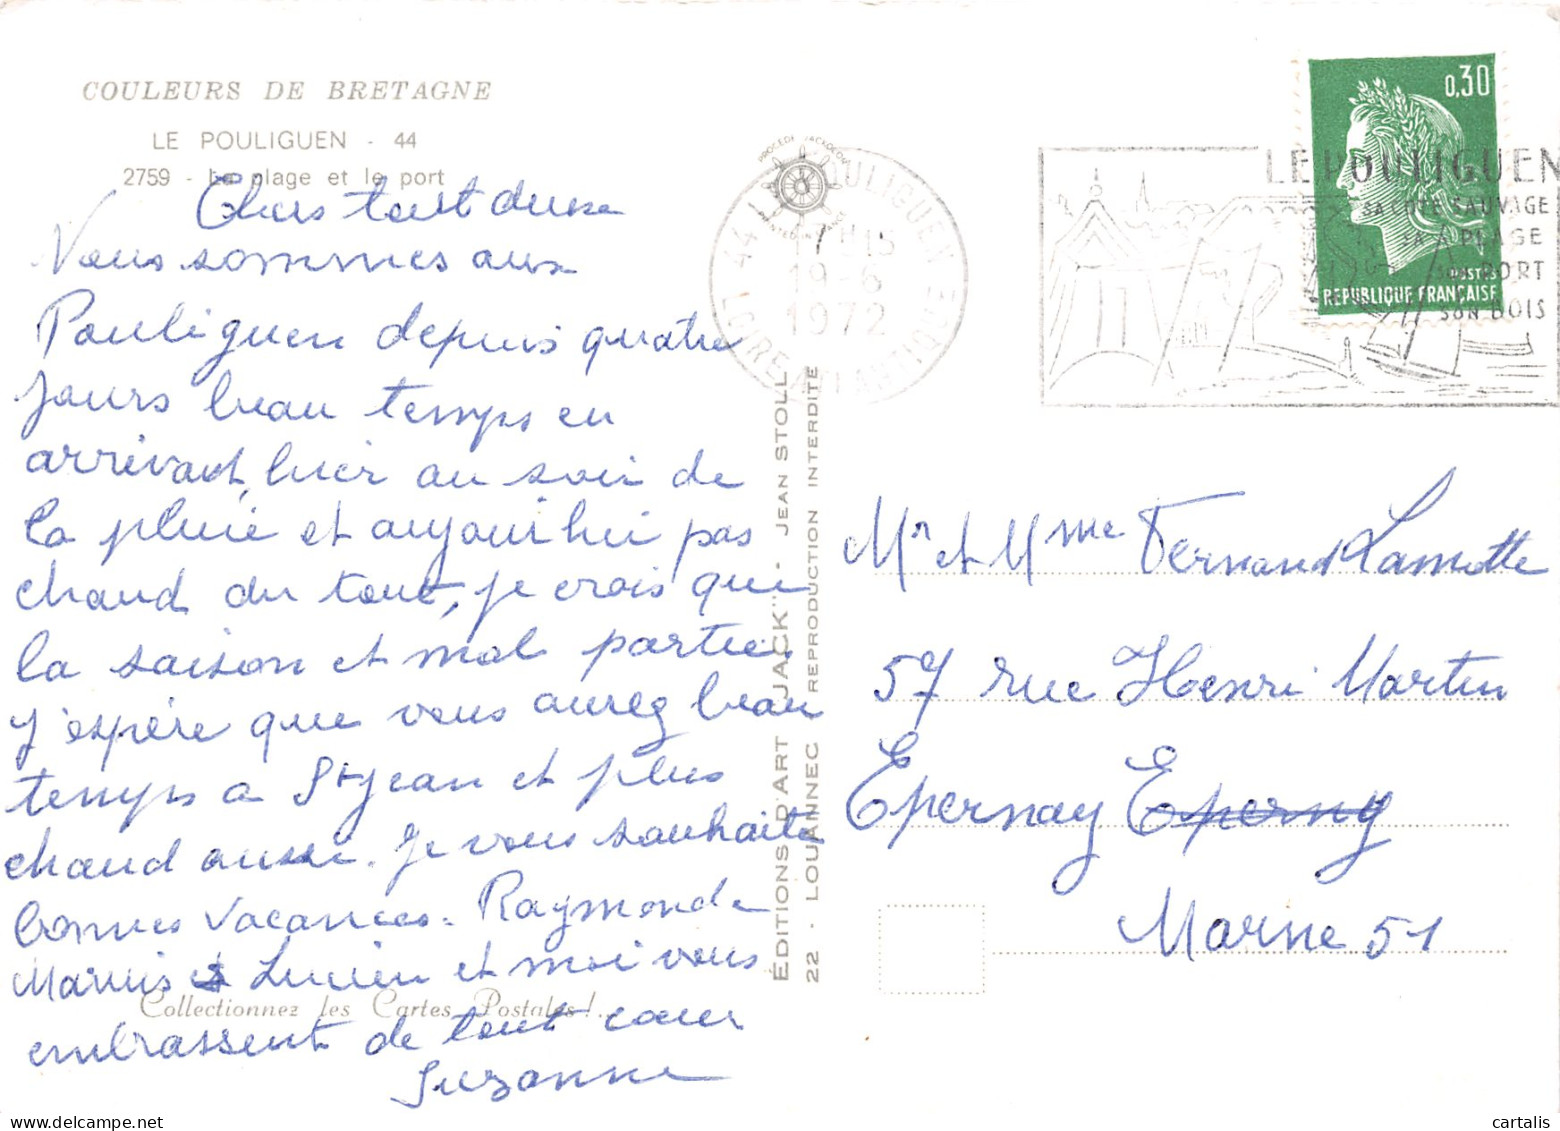 COULEURS DE BRETAGNE
LE POULIGUEN - 44
2759 - La plage et le port
Chers tout
Vous sommes aux
Pouliguen depuis quatre
jours beau temps en
arrivant, hier au soir de
la pluie et aujourhui pas
chaud du tout, je crois que
la saison et mal partie
j'espère que vous aurez beau
temps a St Jean et plus
chaud aussi. Je vous souhaite
bonnes vacances. Raymonde
Lucien et moi vous
embrassent de tout cœur
Suzanne
Collectionnez les Cartes Postales!..
PROCÉDÉ JACKOCOLOR
ÉDITIONS D'ART "JACK" - JEAN STOLL
22 - LOUANNEC REPRODUCTION INTERDITE
44 LE POULIGUEN
15
19-6
1972
LOIRE ATLANTIQUE
LE POULIGUEN
SA COTE SAUVAGE
SA PLAGE
SON PORT
SON BOIS
0,30
POSTES
REPUBLIQUE FRANÇAISE
Mr et Mme Fernand Lamotte
57 rue Henri Martin
Epernay Eperny
Marne 51
cartalis